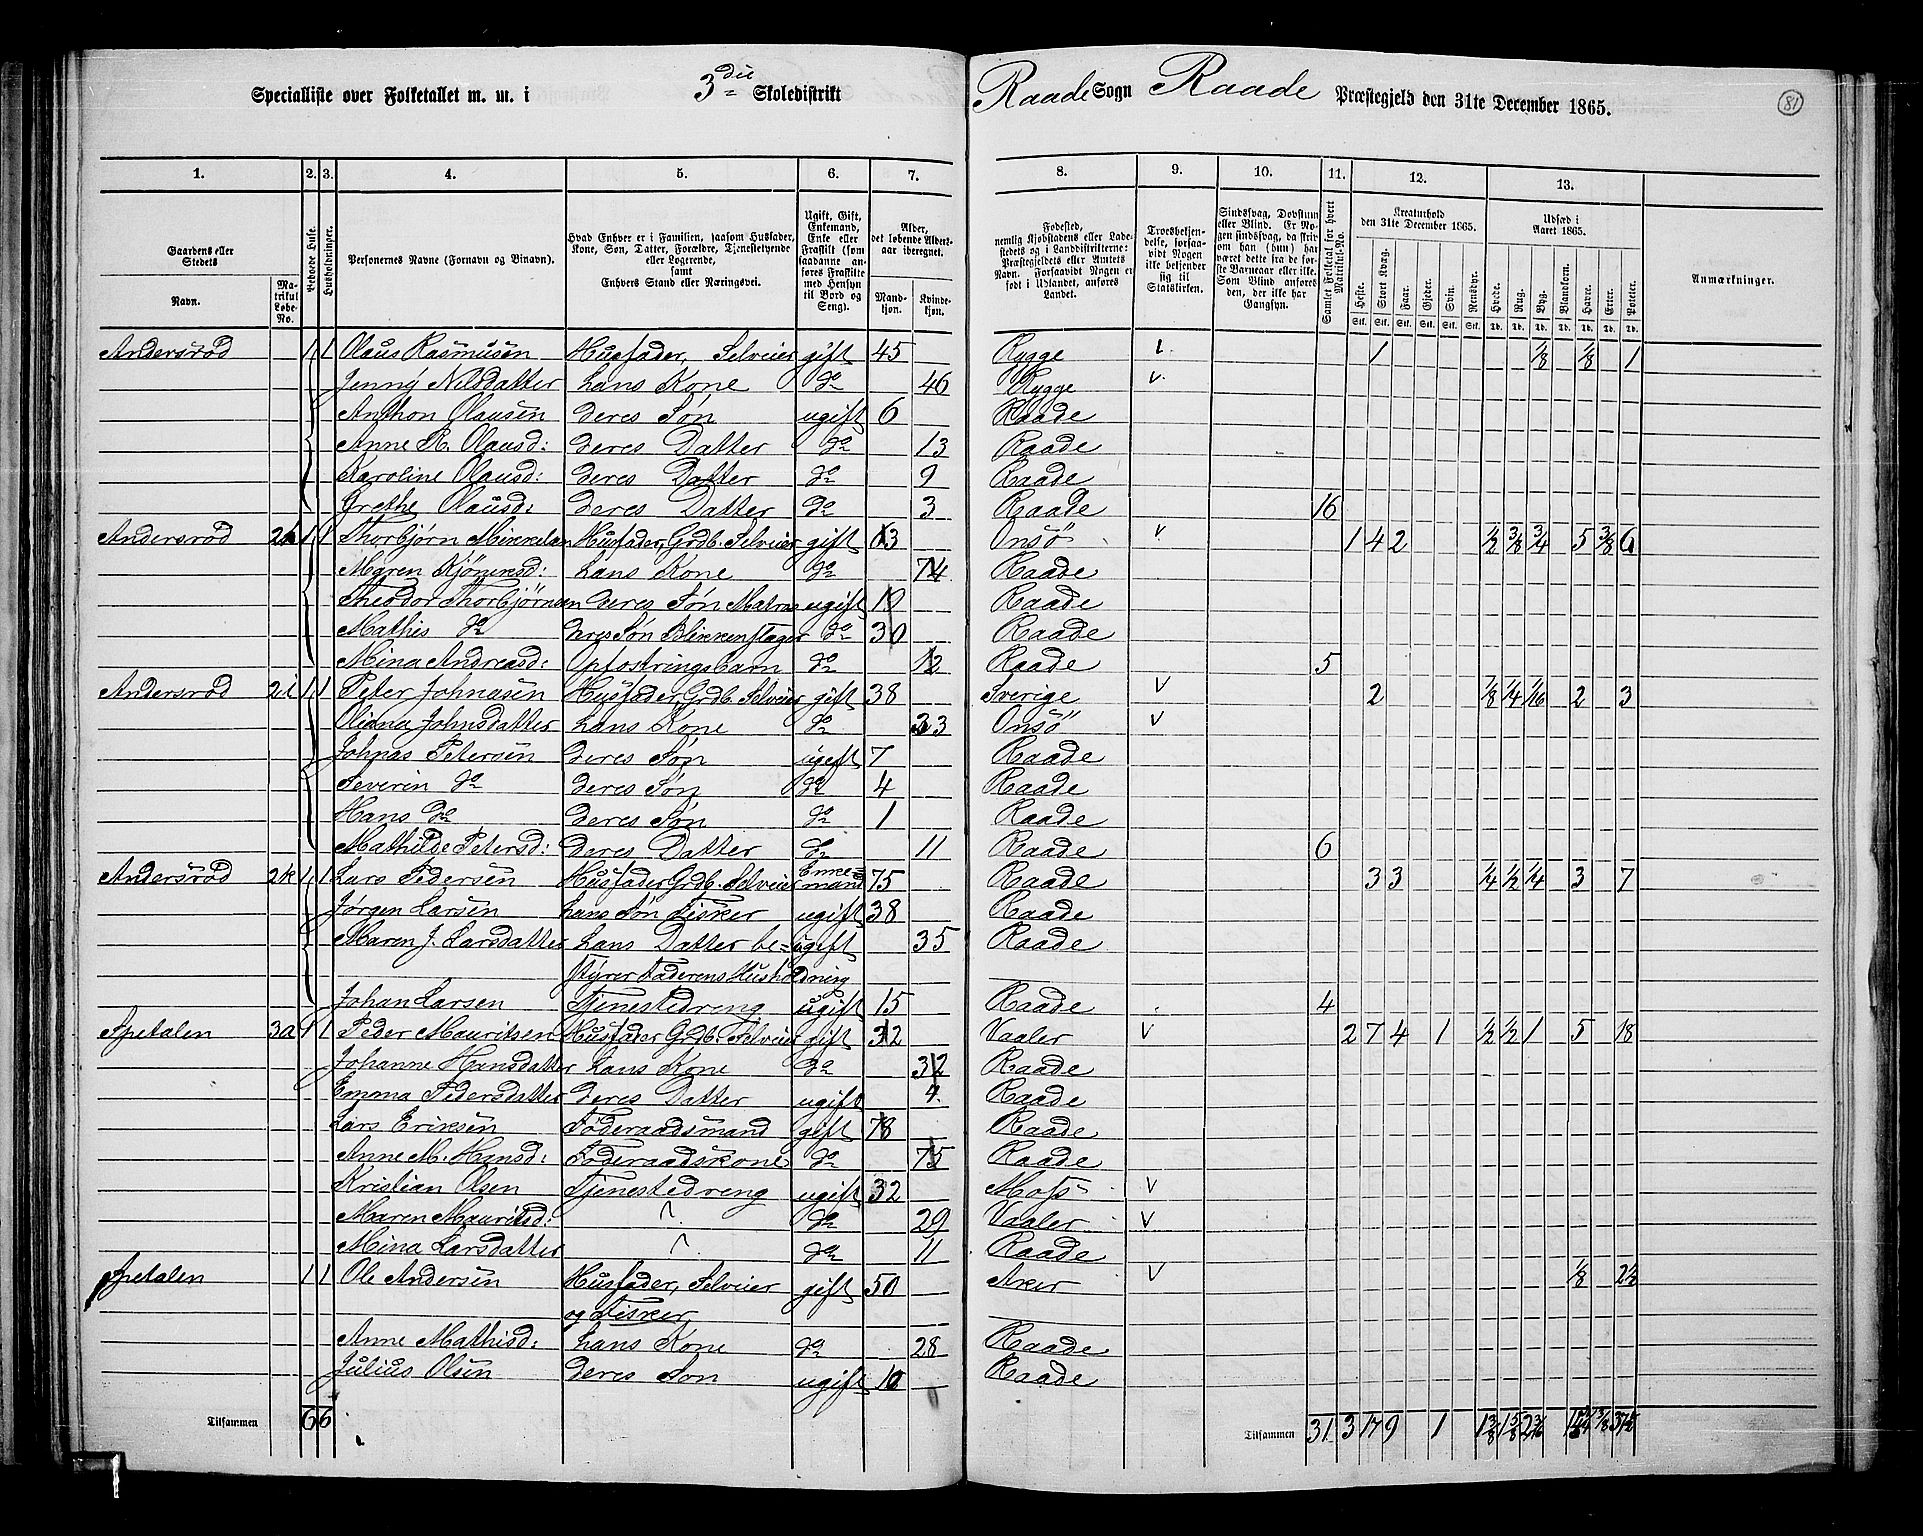 Specialliste over Folketallet m. m. i 3die Skoledistrikt Raade Sogn Raade Præstegjeld den 31te December 1865. 81
1. 2. 3. 4. 5. 6. 7. 8. 9. 10. 11. 12. 13.
Gaardens eller Stedets Navn. Matrikul Løbe-No. Beboede Huse. Husholdninger. Personernes Navne (Fornavn og Binavn). Hvad Enhver er i Familien, saasom Husfader, Kone, Søn, Datter, Forældre, Tjenestetyende eller Logerende, samt Enhvers Stand eller Næringsvei. Ugift, Gift, Enkemand, Enke eller Fraskilt (som saadanne anføres Fraskilte med Hensyn til Bord og Seng). Alder, det løbende Aldersaar iberegnet. Mandkjøn. Kvindekjøn. Fødested, nemlig Kjøbstadens eller Ladestedets og i Landdistrikterne: Præstegjeldets eller Amtets Navn. Forsaavidt Nogen er født i Udlandet, anføres Landet. Troesbekjendelse, forsaavidt Nogen ikke bekjender sig til Statskirken. Sindssvag, Døvstum eller Blind. Er Nogen sindssvag, da skrives om han (hun) har været dette fra de første Barneaar eller ikke. Som Blind anføres den, der ikke har Gangsyn. Samlet Folketal for hvert Matrikul-No. Kreaturhold den 31te December 1865. Heste. Stort Kvæg. Faar. Gjeder. Svin. Rensdyr. Udsæd i Aaret 1865. Hvede. Rug. Byg. Blandkorn. Havre. Erter. Poteter. Anmærkninger.
Andersrød 1 1 Olaus Rasmusen Husfader, Selveier gift 45 Rygge v 1 1/8 1/8 1
Jenny Nilsdatter hans Kone do 46 Rygge v
Anthon Olausen deres Søn ugift 6 Raade
Anne R. Olausd: deres Datter do 13 Raade
Karoline Olausd: deres Datter do 9 Raade
Grethe Olausd: deres Datter do 3 Raade 16
Andersrød 2h 1 1 Thorbjørn Mikkelsen Husfader, Grdb. Selveier gift 63 Onsö v 1 4 2 1/2 3/8 3/4 5 3/8 6
Maren Kjöniksd: hans Kone do 74 Raade
Theodor Thorbjörnsen deres Søn Matros ugift 19 Raade
Mathis do deres Søn Blikkenslager do 30 Raade
Mina Andreasd: Opfostringsbarn do 12 Raade 5
Andersrød 2i 1 1 Peter Johnasen Husfader, Grdb. Selveier gift 38 Sverige v 2 1/8 1/4 1/16 2 3
Oliana Johnsdatter hans Kone do 33 Onsö v
Johnas Petersen deres Søn ugift 7 Raade
Severin do deres Søn do 4 Raade
Hans do deres Søn do 1 Raade
Mathilde Petersd: deres Datter do 11 Raade 6
Andersrød 2k 1 1 Lars Pedersen Husfader Grdb. Selveier Enkemand 75 Raade 3 3 1/4 1/2 1/4 3 7
Jørgen Larsen hans Søn Fisker ugift 38 Raade
Maren J. Larsdatter hans Datter be= ugift 35 Raade
styrer Faderens Husholdning
Johan Larsen Tjenestedreng ugift 15 Raade 4
Spetalen 3a 1 1 Peder Mauritsen Husfader Grdb. Selveier gift 32 Vaaler v 2 7 4 1 1/2 1/2 1 5 18
Johanne Hansdatter hans Kone do 32 Raade
Emma Pedersdatter deres Datter ugift 4 Raade
Lars Eriksen Föderaadsmand gift 78 Raade
Anne M. Hansd: Föderaadskone do 75 Raade
Kristian Olsen Tjenestedreng ugift 32 Moss v
Maren Mauritsd: do 29 Vaaler v
Mina Larsdatter do 11 Raade
Spetalen 1 1 Ole Andersen Husfader, Selveier gift 50 Aker v 1/8 2 1/2
og Fisker
Anne Mathisd: hans Kone do 28 Raade
Julius Olsen deres Søn ugift 10 Raade
Tilsammen 6 6 Tilsammen 31 3 17 9 1 1 3/8 1 5/8 3/8 37 1/2